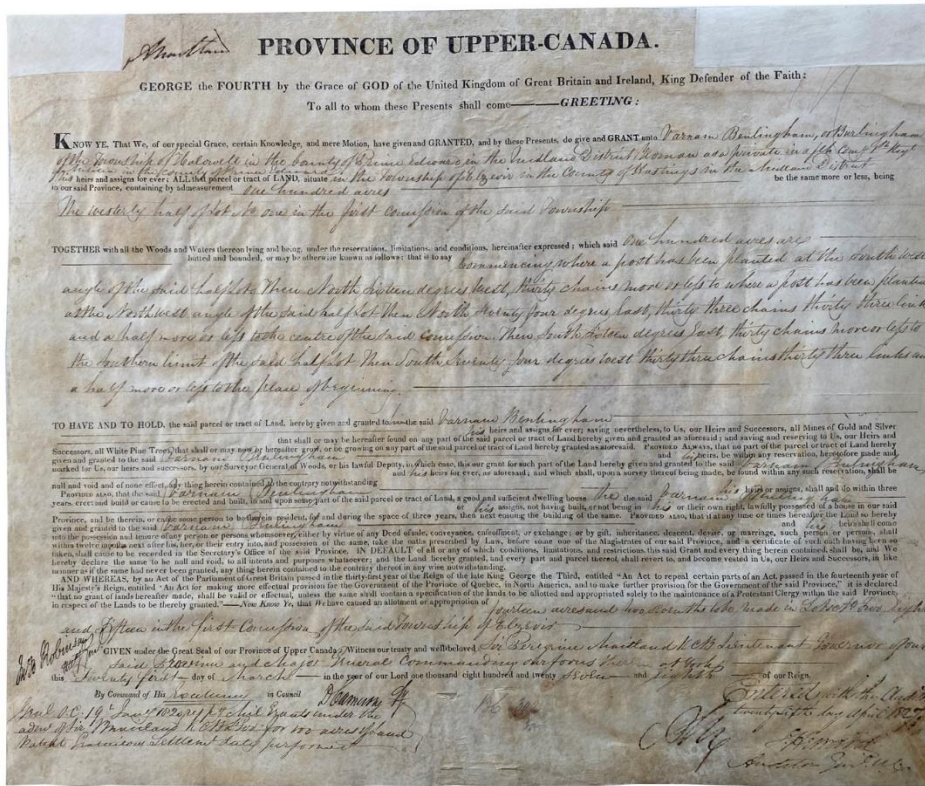 PROVINCE OF UPPER-CANADA.
GEORGE the FOURTH by the Grace of GOD of the United Kingdom of Great Britain and Ireland, King Defender of the Faith:
To all to whom these Presents shall come——GREETING:
KNOW YE, That We, of our special Grace, certain Knowledge, and mere Motion, have given and GRANTED, and by these Presents, do give and GRANT unto Varnam Benlingham, or Burlingham
of the Township of in the County of Prince Edward, in the Midland District, Yeoman as a private in
his heirs and assigns for ever; ALL that parcel or tract of LAND, situate in the Township of Elzevir in the County of Hastings in the Midland District
be the same more or less, being
in our said Province, containing by admeasurement one hundred acres
The westerly half of Lot No one in the first concession of the said Township
TOGETHER with all the Woods and Waters thereon lying and being, under the reservations, limitations, and conditions, hereinafter expressed; which said one hundred acres are
butted and bounded, or may be otherwise known as follows; that is to say Commencing where a post has been planted at the South west
angle of the said half Lot Then North sixteen degrees West, thirty chains more or less to where a post has been planted
at the North West angle of the said half Lot Then North Seventy four degrees East, thirty three chains thirty three links
and a half more or less to the centre of the said concession. Then South sixteen degrees East, thirty chains more or less to
the Southern limit of the said half Lot Then South Seventy four degrees West thirty three chains thirty three links and
a half more or less to the place of beginning.
TO HAVE AND TO HOLD, the said parcel or tract of Land, hereby given and granted to the said Varnam Benlingham
his heirs and assigns for ever; saving nevertheless, to Us, our Heirs and Successors, all Mines of Gold and Silver
that shall or may be hereafter found on any part of the said parcel or tract of Land hereby given and granted as aforesaid; and saving and reserving to Us, our Heirs and
Successors, all White Pine Trees, that shall or may now or hereafter grow, or be growing on any part of the said parcel or tract of Land hereby granted as aforesaid. PROVIDED ALWAYS, that no part of the parcel or tract of Land hereby
given and granted to the said Varnam Benlingham and his heirs, be within any reservation, heretofore made and
marked for Us, our heirs and successors, by our Surveyor General of Woods, or his lawful Deputy, in which case, this our grant for such part of the Land hereby given and granted to the said Varnam Benlingham
and his heirs for ever, as aforesaid, and which shall, upon a survey thereof being made, be found within any such reservation, shall be
null and void and of none effect, any thing herein contained to the contrary notwithstanding
PROVIDED ALSO, that the said Varnam Benlingham his heirs or assigns, shall and do within three
years, erect and build or cause to be erected and built, in and upon some part of the said parcel or tract of Land, a good and sufficient dwelling house he the said Varnam Benlingham
or his assigns, not having built, or not being in his or their own right, lawfully possessed of a house in our said
Province, and be therein, or cause some person to be therein resident, for and during the space of three years, then next ensuing the building of the same. PROVIDED ALSO, that if at any time or times hereafter the Land so hereby
given and granted to the said Varnam Benlingham and his heirs shall come
into the possession and tenure of any person or persons whomsoever, either by virtue of any Deed of sale, conveyance, enfeoffment, or exchange; or by gift, inheritance, descent, devise, or marriage, such person or persons, shall
within twelve months next after his, her, or their entry into, and possession of the same, take the oaths prescribed by Law, before some one of the Magistrates of our said Province, and a certificate of such oath having been so
taken, shall cause to be recorded in the Secretary's Office of the said Province. IN DEFAULT of all or any of which conditions, limitations, and restrictions, this said Grant and every thing herein contained, shall be, and We
hereby declare the same to be null and void, to all intents and purposes whatsoever; and the Land hereby granted, and every part and parcel thereof, shall revert to, and become vested in Us, our Heirs and Successors, in like
manner as if the same had never been granted, any thing herein contained to the contrary thereof in any wise notwithstanding.
AND WHEREAS, by an Act of the Parliament of Great Britain passed in the thirty-first year of the Reign of His late King George the Third, entitled "An Act to repeal certain parts of an Act, passed in the fourteenth year of
His Majesty's Reign, entitled 'An Act for making more effectual provision for the Government of the Province of Quebec, in North America, and to make further provision for the Government of the said Province,'" it is declared
"that no grant of lands hereafter made, shall be valid or effectual, unless the same shall contain a specification of the lands to be allotted and appropriated solely to the maintenance of a Protestant Clergy within the said Province,
in respect of the Lands to be thereby granted."—Now Know Ye, that We have caused an allotment or appropriation of fourteen acres and two sevenths to be made in Lots No Two, Eight
and fifteen in the first Concession of the said Township of Elzevir
GIVEN under the Great Seal of our Province of Upper Canada; Witness our trusty and well-beloved Sir Peregrine Maitland K C B Lieutenant Governor of our
said Province and Major General Commanding our forces therein at York
this Twenty first day of March in the year of our Lord one thousand eight hundred and twenty seven and Eighth of our Reign.
By Command of His Excellency in Council
D Cameron
Entered with the Auditor
twenty day April 1827
Auditor Gen'l U.C.